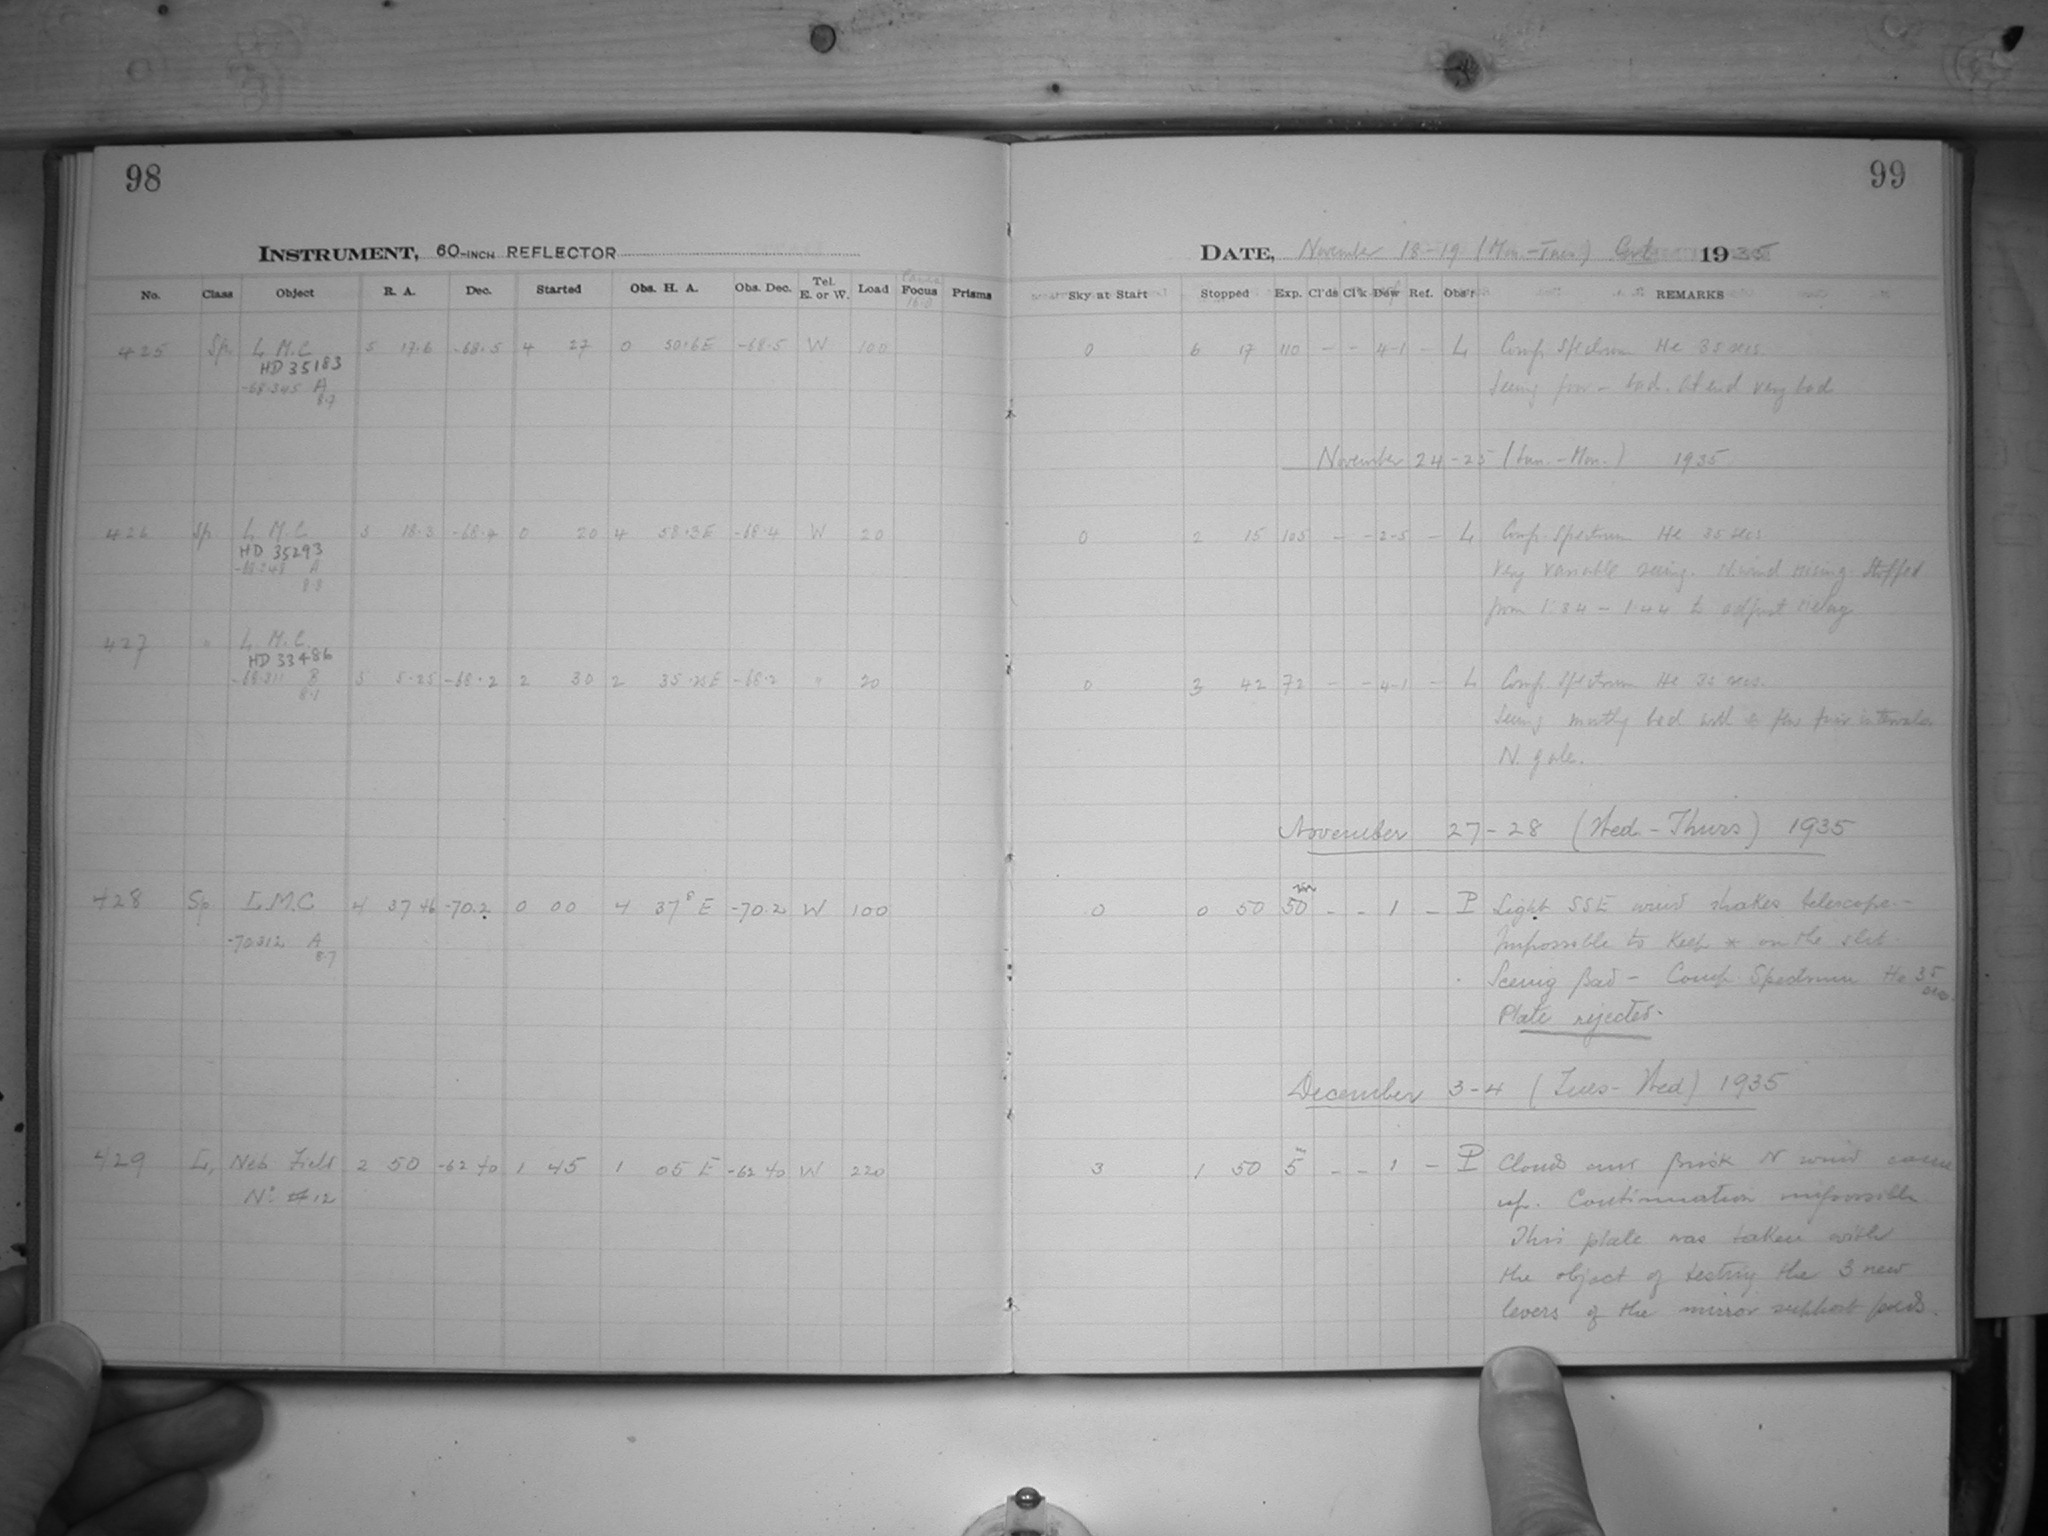 98
INSTRUMENT, 60-INCH REFLECTOR
No. Class Object R. A. Dec. Started Obs. H. A. Obs. Dec. Tel. E. or W. Load Focus Prisms
425 Sp. L M.C 5 17.6 -68.5 4 27 0 50.6E -68.5 W 100
HD 35183
-68.345 A
8.7
426 Sp L M.C 5 18.3 -68.4 0 20 4 58.3E -68.4 W 20
HD 35293
A
8.8
427 " L M.C.
HD 33486
-68.311 B 5 5.25 -68.2 2 30 2 35.25E -68.2 " 20
8.1
428 Sp L.M.C 4 37 46 -70.2 0 00 4 37.8 E -70.2 W 100
-70.312 A
8.7
429 L, Neb. Field 2 50 -62 40 1 45 1 05 E -62 40 W 220
No 12
99
DATE, November 18-19 (Mon.-Tues) Cont. 1935
Sky at Start Stopped Exp. Cl'ds Cl'k Dew Ref. Obs'r REMARKS
0 6 17 110 - - 4-1 - L Comp. Spectrum He 35 secs.
Seeing poor - bad. At end very bad
November 24-25 (Sun.-Mon.) 1935
0 2 15 105 - - 2-5 - L Comp. Spectrum He 35 secs
Very variable seeing. N. wind rising. Stopped
from 1.34 - 1.44 to adjust relay
0 3 42 72 - - 4-1 - L Comp. Spectrum He 35 secs.
Seeing mostly bad with a few fair intervals.
N. gale.
November 27-28 (Wed-Thurs) 1935
0 0 50 50 min - - 1 - P Light SSE wind shakes telescope -
Impossible to keep * on the slit.
Seeing Bad - Comp. Spectrum He 35
secs.
Plate rejected.
December 3-4 (Tues-Wed) 1935
3 1 50 5 m - - 1 - P Clouds and Brisk N wind came
up. Continuation impossible
This plate was taken with
the object of testing the 3 new
levers of the mirror support pads.